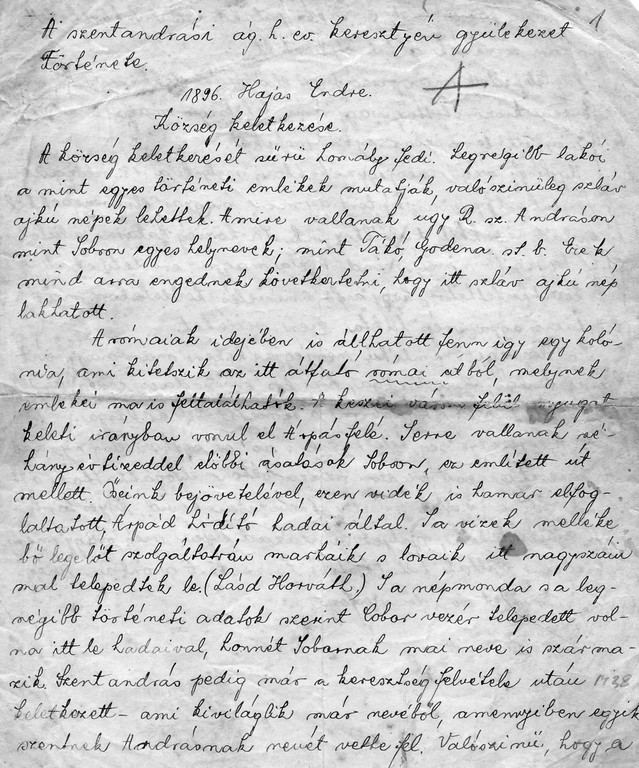 1
A szentandrási ág. h. ev. keresztyén gyülekezet
Története.
1896. Hajas Endre.
A
Község keletkezése.
A község keletkezését sűrű homály fedi. Legrégibb lakói
a mint egyes történeti emlékek mutatják, valószinüleg szláv
ajkú népek lehettek. Amire vallanak ugy R. sz. Andráson
mint Soboron egyes helynevek; mint Takó, Godena. st. b. Ezek
mind arra engednek következtetni, hogy itt szláv ajkú nép
lakhatott.
A rómaiak idejében is állhatott fenn igy egy koló-
nia, ami kitetszik az itt átfutó római útból, melynek
emlékei ma is feltalálhatók. A keszői város felül nyugot
keleti irányban vonul el Árpás felé. Serre vallanak né-
hány évtizeddel előbbi ásatások Soboron, ez említett út
mellett. Őseink bejövetelével, ezen vidék is hamar elfog-
laltatott, Árpád hódító hadai által. S a vizek melléke
bő legelőt szolgáltatván marháik s lovaik itt nagyszám
mal telepedtek le. (Lásd Horváth.) S a népmonda s a leg-
régibb történeti adatok szerint Cobor vezér telepedett vol-
na itt le hadaival, honnét Sobornak mai neve is szárma-
zik. Szentandrás pedig már a keresztség felvétele után 1138
keletkezett – ami kiviláglik már nevéből, amennyiben egyik
szentnek Andrásnak nevét vette fel. Valószinü, hogy a